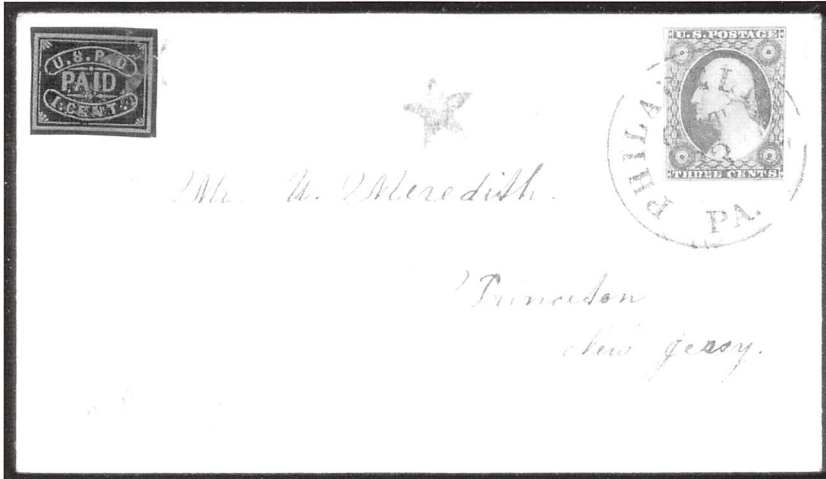 U.S.P.O
PAID
1 CENT.
U.S. POSTAGE
THREE CENTS
PHILA
PA.
Mr. W. Meredith.
Princeton
New Jersy.